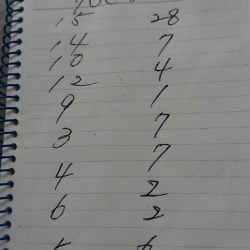 15 28
14 7
10 4
12 1
9 7
3 7
4 2
6 2